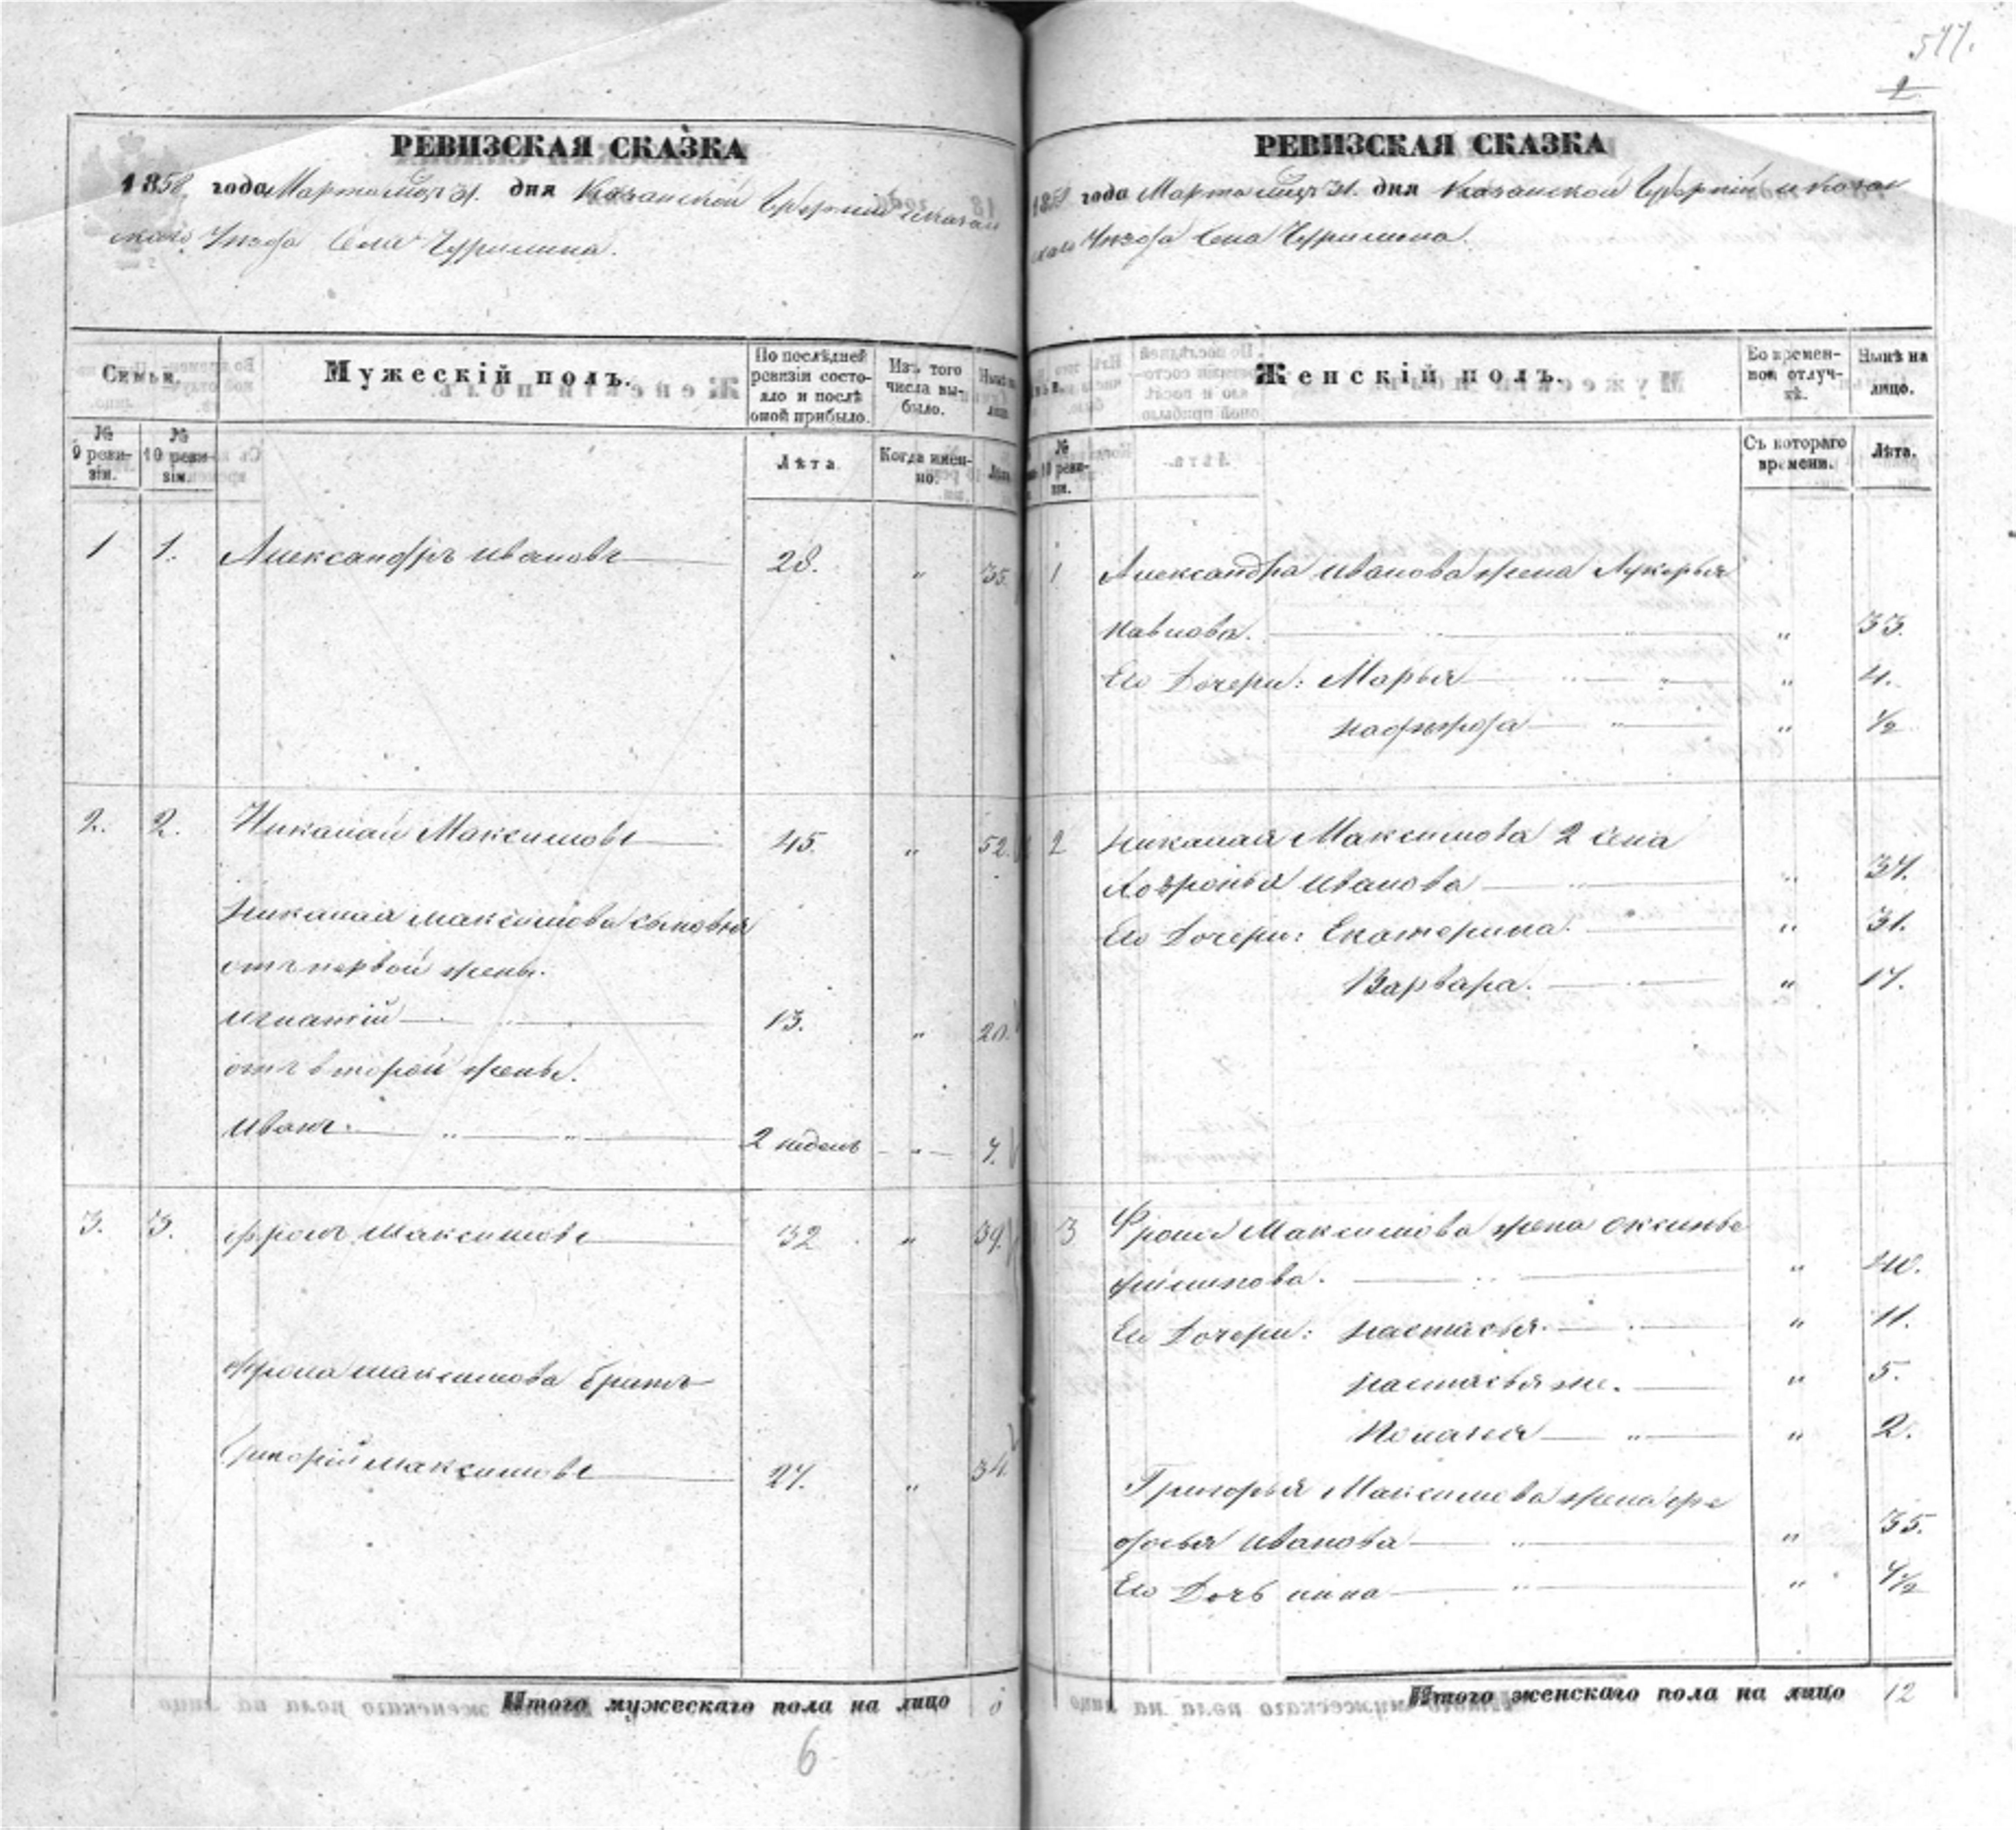 577.
2
РЕВИЗСКАЯ СКАЗКА
1858 года Марта мца 31. дня Казанской Губернии и Казан
скаго Уезда Села Чурилина.
Семьи.
Мужескій полъ.
По послѣдней
ревизіи состо-
яло и послѣ
оной прибыло.
Изъ того
числа вы-
было.
Нынѣ на
лицо.
№
9 реви-
зіи.
№
10 реви-
зіи.
Лѣта
Когда имен-
но.
Лѣта.
1 1. Александръ Ивановъ 28. " 35.
2. 2. Никалай Максимовъ 45. " 52.
Никалая Максимова сыновья
отъ первой жены.
Игнатій 13. " 20.
отъ второй жены.
Иванъ. 2 недель " 7.
3. 3. Фролъ Максимовъ 32 " 39.
Фрола Максимова братъ
Григорій Максимовъ 27. " 34.
Итого мужескаго пола на лицо
6
РЕВИЗСКАЯ СКАЗКА
1858 года Марта мца 31. дня Казанской Губерніи и Казан
скаго Уезда Села Чурилина.
№
10 реви-
зіи.
Женскій полъ.
Во времен-
ной отлуч-
кѣ.
Нынѣ на
лицо.
Съ котораго
времени.
Лѣта.
1 Александра Иванова жена Лукерья
Павлова. " 33.
Его Дочери: Марья " 4.
" ½
2 Никалая Максимова 2 жена
Ховронья Иванова " 37.
Его Дочери: Екатерина. " 31.
Варвара. " 17.
3 Фрола Максимова жена Оксинья
Филипова. " 40.
Его Дочери: Настасья. " 11.
Настасья же. " 5.
Полагея " 2.
Григорья Максимова жена Фе
досья Иванова " 35.
Его Дочь " ½
Итого женскаго пола на лицо 12